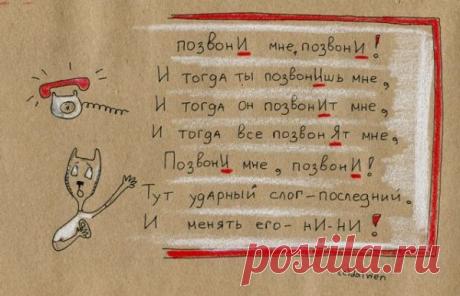 позвонИ мне, позвонИ!
И тогда ты позвонИшь мне,
И тогда он позвонИт мне,
И тогда все позвонЯт мне,
ПозвонИ мне, позвонИ!
Тут ударный слог – последний.
И менять его – нИ-нИ!
postila.ru